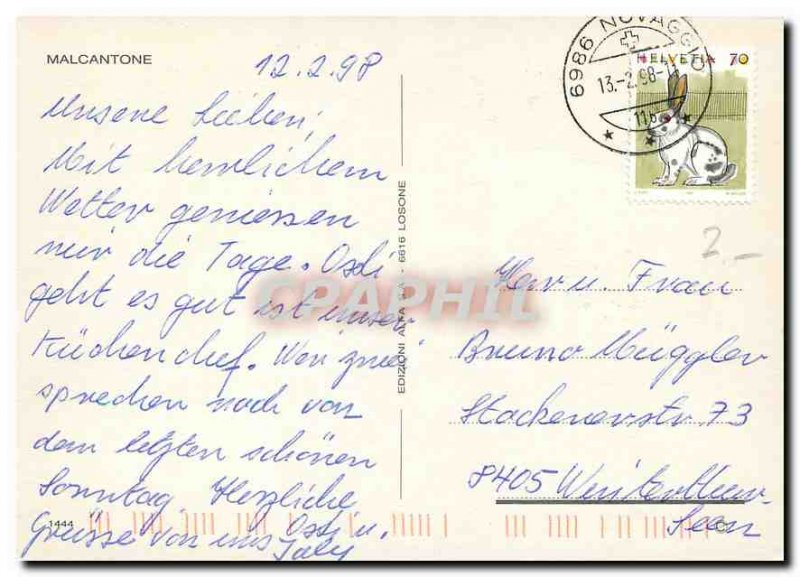 MALCANTONE
12.2.98
Unsere Lieben,
Mit herrlichem
Wetter geniessen
wir die Tage. Oski
geht es gut ist unser
Küchenchef. Wir zwei
sprechen noch von
dem letzten schönen
Sonntag Herzliche
Grüsse von uns Oski u.
1444
EDIZIONI ALFA S.A. - 6616 LOSONE
6986 NOVAGGIO
13.-2.98-11
HELVETIA 70
2.-
Herr u. Frau
Bruno Müggler
Stockenerstr. 73
8405 Winterthur-
Seen
CPAPHIL